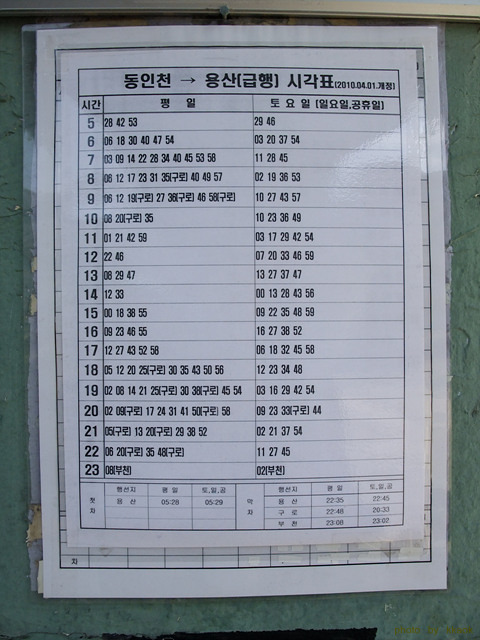 동인천 → 용산(급행) 시각표(2010.04.01.개정)
시간 평 일 토요일 (일요일,공휴일)
5 28 42 53 29 46
6 06 18 30 40 47 54 03 20 37 54
7 03 09 14 22 28 34 40 45 53 58 11 28 45
8 06 12 17 23 31 35(구로) 40 49 57 02 19 36 53
9 06 12 19(구로) 27 36(구로) 46 58(구로) 10 27 43 57
10 08 20(구로) 35 10 23 36 49
11 01 21 42 59 03 17 29 42 54
12 22 46 07 20 33 46 59
13 08 29 47 13 27 37 47
14 12 33 00 13 28 43 56
15 00 18 38 55 09 22 35 48 59
16 09 23 46 55 16 27 38 52
17 12 27 43 52 58 06 18 32 45 58
18 05 12 20 25(구로) 30 35 43 50 56 12 23 34 48
19 02 08 14 21 25(구로) 30 38(구로) 45 54 03 16 29 42 54
20 02 09(구로) 17 24 31 41 50(구로) 58 09 23 33(구로) 44
21 05(구로) 13 20(구로) 29 38 52 02 21 37 54
22 06 20(구로) 35 48(구로) 11 27 45
23 08(부천) 02(부천)
첫차 행선지 평 일 토,일,공 막차 행선지 평 일 토,일,공
용 산 05:28 05:29 용 산 22:35 22:45
구 로 22:48 20:33
부 천 23:08 23:02
차